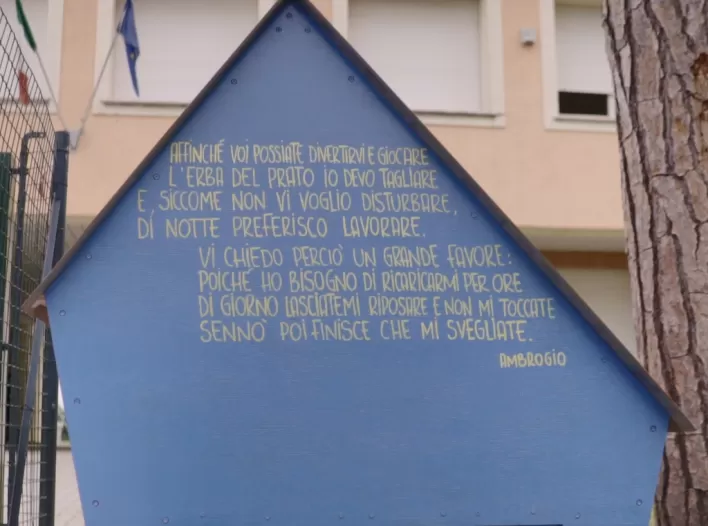 AFFINCHÉ VOI POSSIATE DIVERTIRVI E GIOCARE
L'ERBA DEL PRATO IO DEVO TAGLIARE
E, SICCOME NON VI VOGLIO DISTURBARE,
DI NOTTE PREFERISCO LAVORARE.
VI CHIEDO PERCIO' UN GRANDE FAVORE:
POICHÉ HO BISOGNO DI RICARICARMI PER ORE
DI GIORNO LASCIATEMI RIPOSARE E NON MI TOCCATE
SENNO' POI FINISCE CHE MI SVEGLIATE.
AMBROGIO